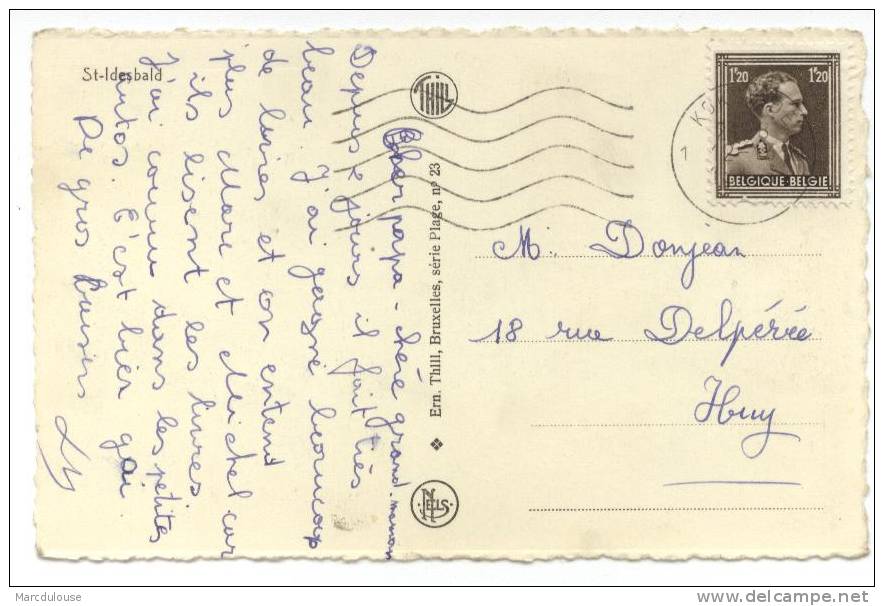 St-Idesbald
Cher papa - chère grand-maman
Depuis 2 jours il fait très
beau. J'ai gagné beaucoup
de livres et on entend
plus Marc et Michel car
ils lisent les livres
J'ai couru dans les petites
autos. C'est bien gai.
De gros baisers
THILL
Ern. Thill, Bruxelles, série Plage, nº 23
NELS
1f20 1f20
BELGIQUE·BELGIE
M. Donjean
18 rue Delpérée
Huy
Marcdulouse
www.delcampe.net